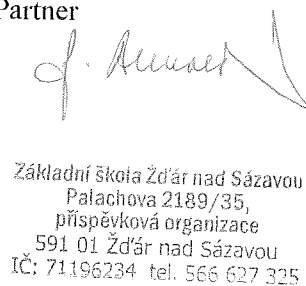 Partner
Základní škola Žďár nad Sázavou
Palachova 2189/35,
příspěvková organizace
591 01 Žďár nad Sázavou
IČ: 71196234 tel. 566 627 325